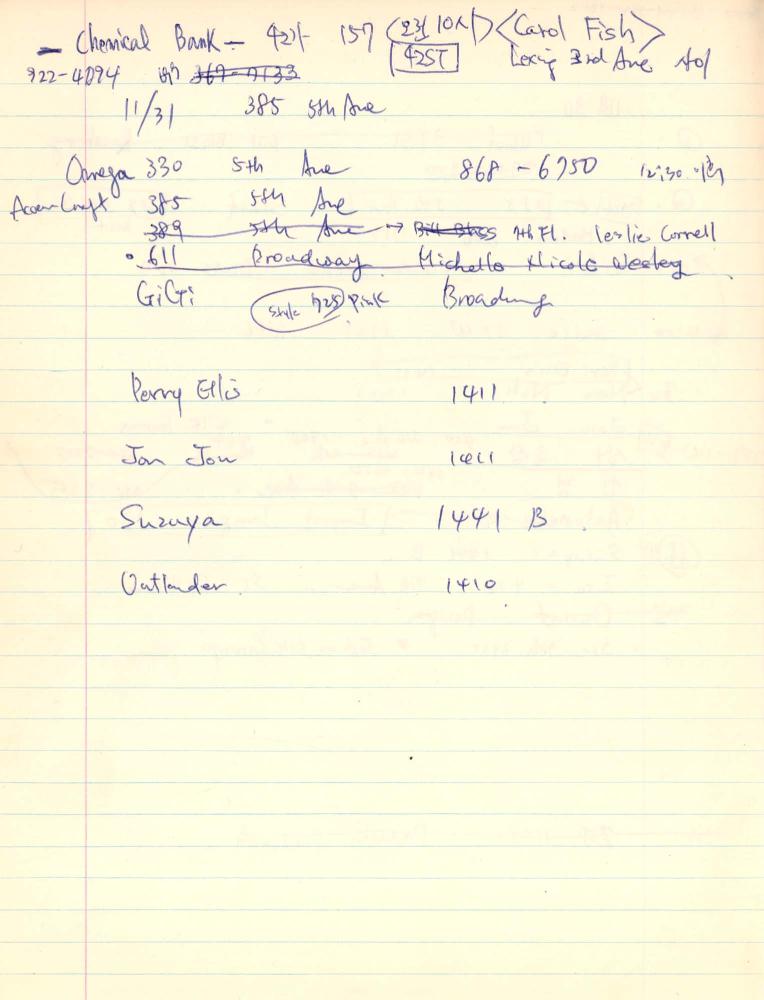 - Chemical Bank - 42가 157 (오전 10시) <Carol Fish>
42ST 3rd Ave 사이
922-4094
11/31 385 5th Ave
Omega 330 5th Ave 868-6750 12:30
385 5th Ave
389 5th Ave → Bill Blass 7th Fl. Leslie Cornell
• 611 Broadway Michelle Nicole Wesley
GiGi Style 1725 Pink Broadway
Perry Ellis 1411
Jon Jon 1411
Suzuya 1441 B
Outlander 1410